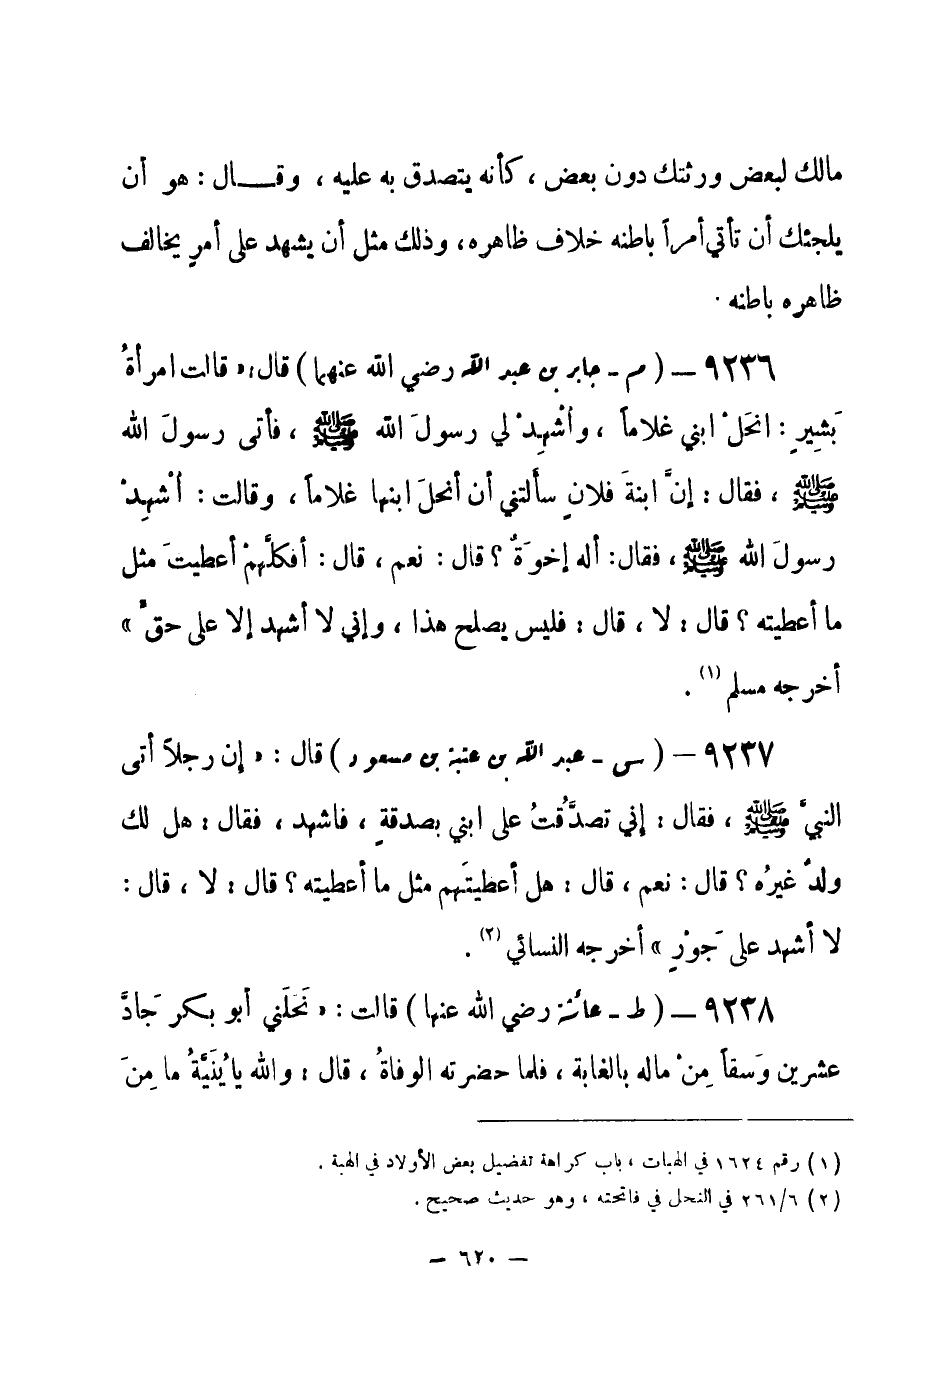 مالك لبعض ورثتك دون بعض ، كأنه يتصدق به عليه ، وقــال : هو أن
يلجئك أن تأتي أمراً باطنه خلاف ظاهره ، وذلك مثل أن يشهد على أمرٍ يخالف
ظاهره باطنه .
٩٢٣٦ – ( م - جابر بن عبد الله رضي الله عنهما ) قال : « قالت امرأةُ
بَشِيرٍ : انحَلْ ابني غلاماً ، وأشْهِدْ لي رسولَ الله ﷺ ، فأتى رسولَ الله
ﷺ ، فقال : إنَّ ابنةَ فلانٍ سألتني أن أنحلَ ابنها غلاماً ، وقالت : أشْهِدْ
رسولَ الله ﷺ ، فقال : أله إخوَةٌ ؟ قال : نعم ، قال : أفكلَّهمْ أعطيتَ مثل
ما أعطيته ؟ قال : لا ، قال : فليس يصلح هذا ، وإني لا أشهد إلا على حقٍّ »
أخرجه مسلم (١) .
٩٢٣٧ – ( س - عبد الله بن عتبة بن مسعود ) قال : « إن رجلاً أتى
النبيَّ ﷺ ، فقال : إني تصدَّقتُ على ابني بصدقةٍ ، فاشهد ، فقال : هل لك
ولدٌ غيرُه ؟ قال : نعم ، قال : هل أعطيتَهم مثل ما أعطيته ؟ قال : لا ، قال :
لا أشهد على جَوْرٍ » أخرجه النسائي (٢) .
٩٢٣٨ – ( ط - عائشة رضي الله عنها ) قالت : « نَحَلَني أبو بكر جَادَّ
عشرين وَسقاً مِنْ ماله بالغابة ، فلما حضرته الوفاةُ ، قال : والله يا بُنَيَّةُ ما مِنَ
(١) رقم ١٦٢٤ في الهبات ، باب كراهة تفضيل بعض الأولاد في الهبة .
(٢) ٢٦١/٦ في النحل في فاتحته ، وهو حديث صحيح .
– ٦٢٠ –